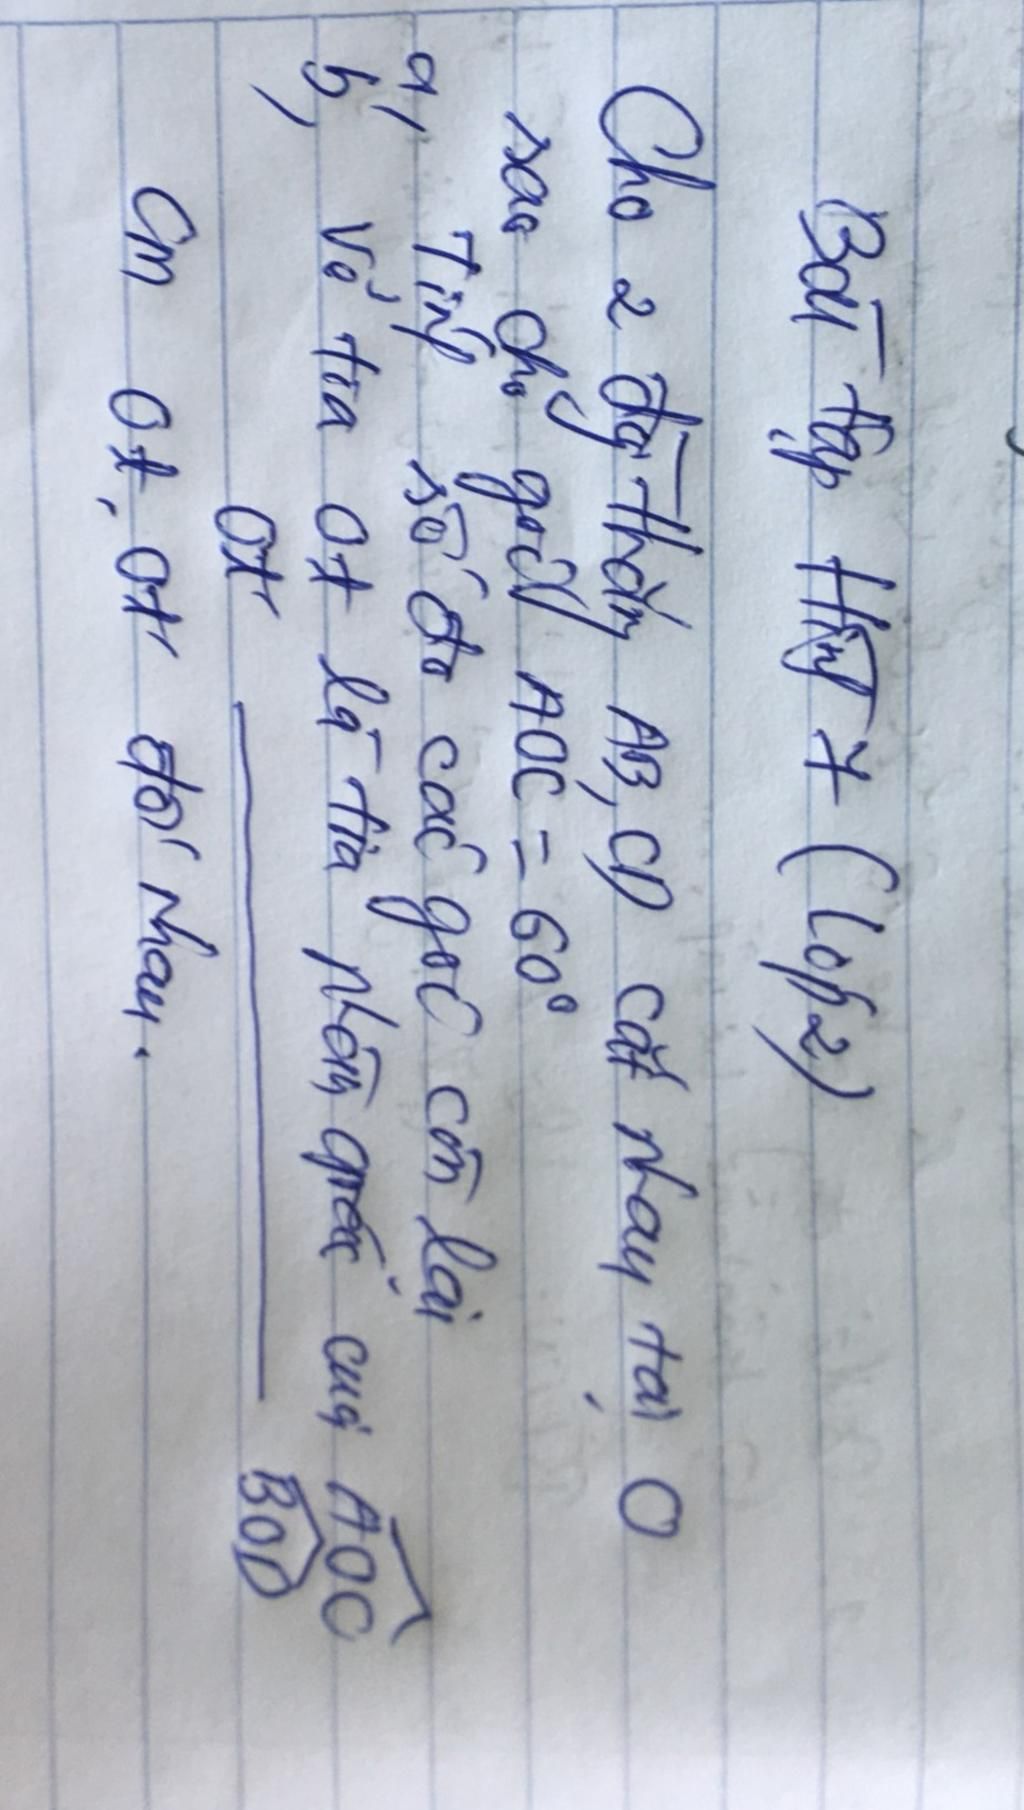 Bài tập Hình 7 (lớp 2)
Cho 2 đg thẳng AB, CD cắt nhau tại O
sao cho góc AOC = 60°
a, Tính số đo các góc còn lại
b, Vẽ tia Ot là tia phân giác của AOC
Ot' BOD
Cm Ot, Ot' đối nhau.